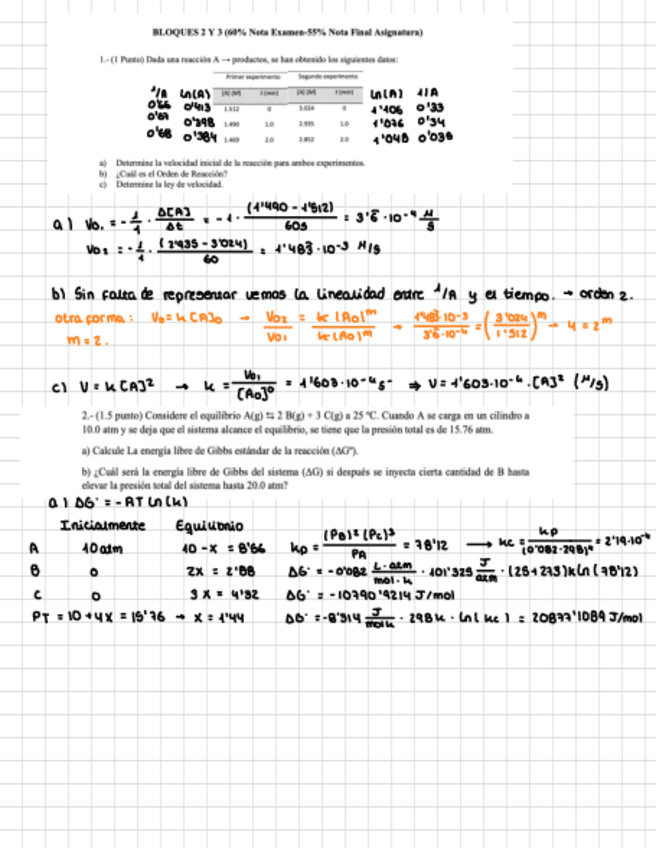 BLOQUES 2 Y 3 (60% Nota Examen-55% Nota Final Asignatura)
1.- (1 Punto) Dada una reacción A → productos, se han obtenido los siguientes datos:
Primer experimento Segundo experimento
1/A Ln(A) [A] (M) t (min) [A] (M) t (min) Ln(A) 1/A
0'66 0'413 1.512 0 3.024 0 1'106 0'33
0'67 0'398 1.490 1.0 2.935 1.0 1'076 0'34
0'68 0'384 1.469 2.0 2.852 2.0 1'048 0'035
a) Determine la velocidad inicial de la reacción para ambos experimentos.
b) ¿Cuál es el Orden de Reacción?
c) Determine la ley de velocidad.
a) Vo₁ = - 1/1 · Δ[A]/Δt = -1 · (1'490 - 1'512)/60s = 3'6̄ · 10⁻⁴ M/s
Vo₂ = - 1/1 · (2'935 - 3'024)/60 = 1'483 · 10⁻³ M/s
b) Sin falta de representar vemos la linealidad entre 1/A y el tiempo. → orden 2.
otra forma: V₀ = k [A]₀ → Vo2/Vo1 = k [Ao]ᵐ/k [Ao]ᵐ → 1'483·10⁻³/3'6̄·10⁻⁴ = (3'024/1'512)ᵐ → 4 = 2ᵐ
m = 2.
c) V = k [A]² → k = Vo₁/[Ao]⁰ = 1'603·10⁻⁴ s⁻ ⇒ V = 1'603·10⁻⁴ · [A]² (M/s)
2.- (1.5 punto) Considere el equilibrio A(g) ⇆ 2 B(g) + 3 C(g) a 25 °C. Cuando A se carga en un cilindro a
10.0 atm y se deja que el sistema alcance el equilibrio, se tiene que la presión total es de 15.76 atm.
a) Calcule La energía libre de Gibbs estándar de la reacción (ΔG°).
b) ¿Cuál será la energía libre de Gibbs del sistema (ΔG) si después se inyecta cierta cantidad de B hasta
elevar la presión total del sistema hasta 20.0 atm?
a) ΔG° = -RT Ln(k)
Inicialmente Equilibrio
A 10 atm 10 - x = 8'56 kp = (PB)² (PC)³/PA = 78'12 → kc = kp/(0'082·298)⁴ = 2'19·10⁻⁴
B 0 2x = 2'88 ΔG° = -0'082 L·atm/mol·k · 101'325 J/atm · (25+273)k Ln(78'12)
C 0 3x = 4'32 ΔG° = -10790'9214 J/mol
PT = 10 + 4x = 15'76 → x = 1'44 ΔG° = -8'314 J/mol k · 298k · Ln(kc) = 20877'1089 J/mol